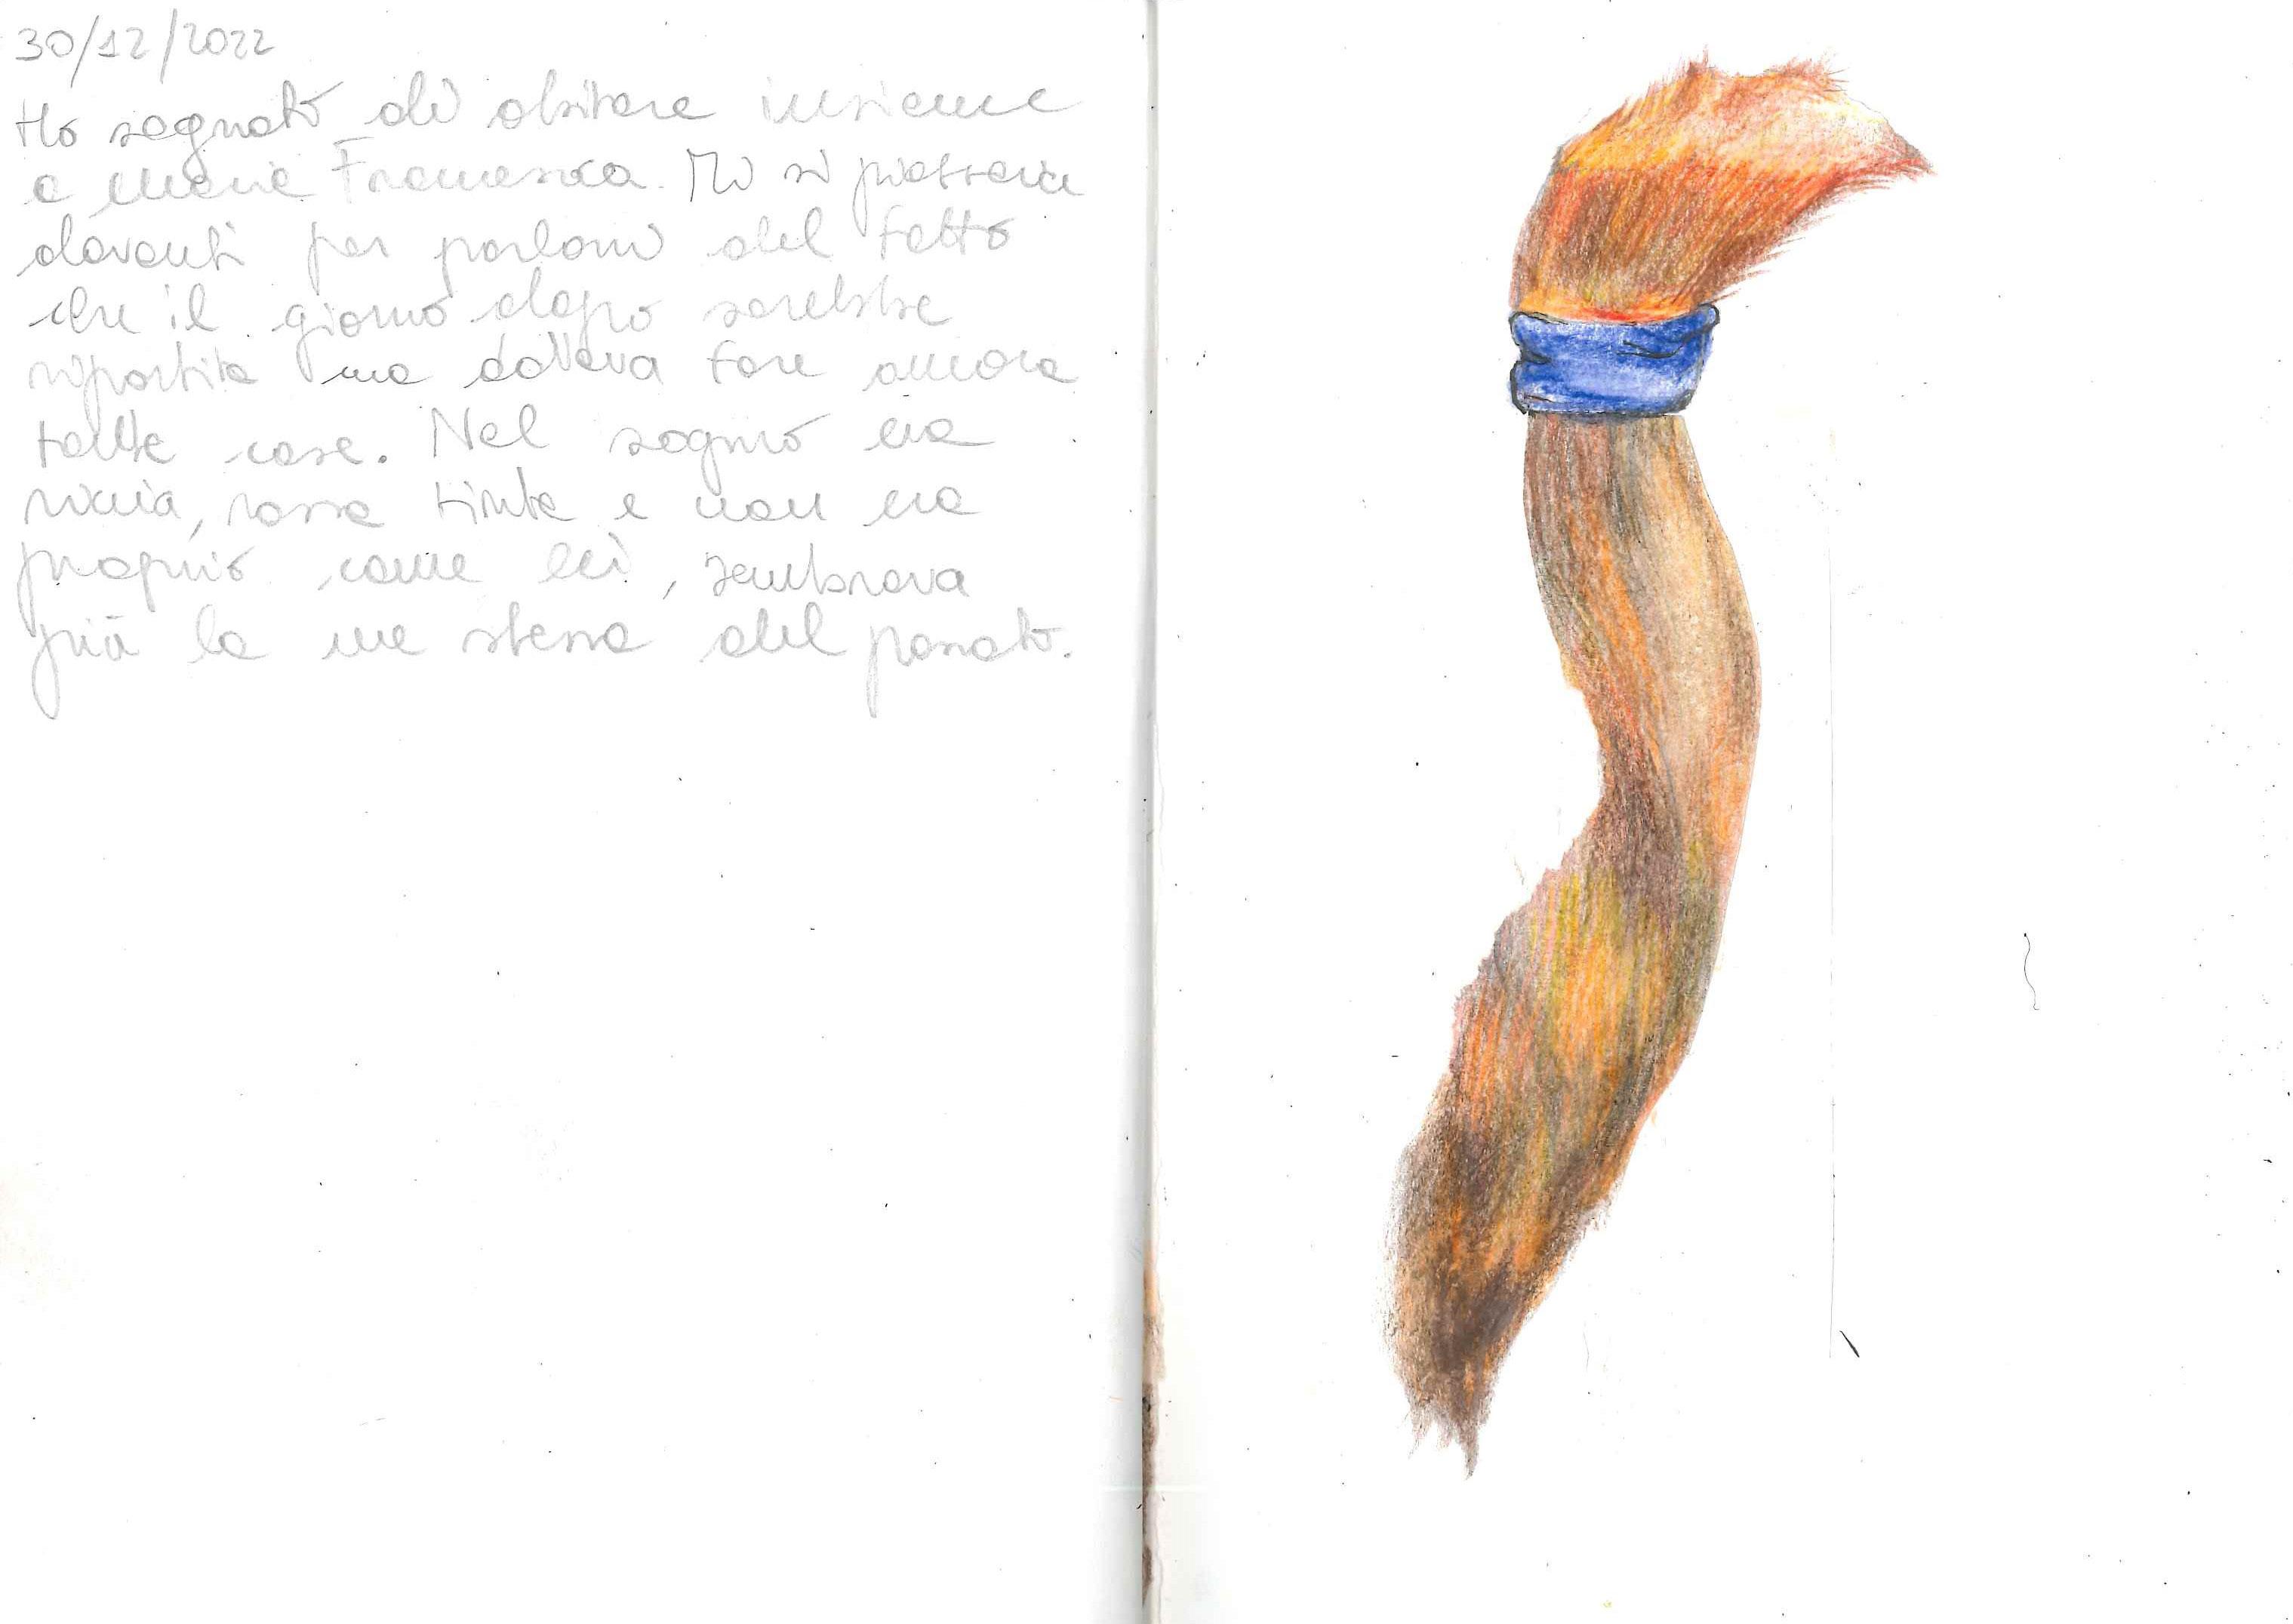 30/12/2022
Ho sognato di abitare insieme
a Maria Francesca. Mi si piazzava
davanti per parlarmi del fatto
che il giorno dopo sarebbe
ripartita ma doveva fare ancora
tante cose. Nel sogno era
riccia, rossa tinta e non era
proprio come lei, sembrava
più la me stessa del passato.